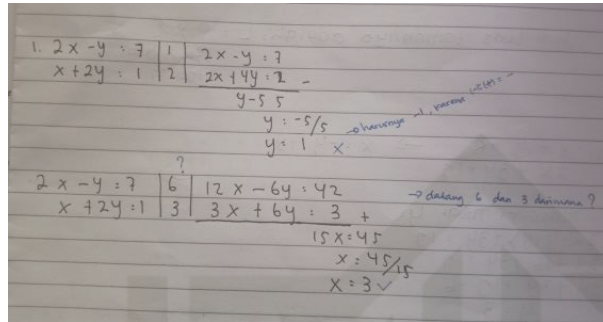 1. 2x - y = 7 | 1 | 2x - y = 7
x + 2y = 1 | 2 | 2x + 4y = 2 -
y - 5 5
y = -5/5 → harusnya -1, karena
y = 1 x
?
2x - y = 7 | 6 | 12x - 6y = 42 → datang 6 dan 3 darimana?
x + 2y = 1 | 3 | 3x + 6y = 3 +
15x = 45
x = 45/15
x = 3 ✓